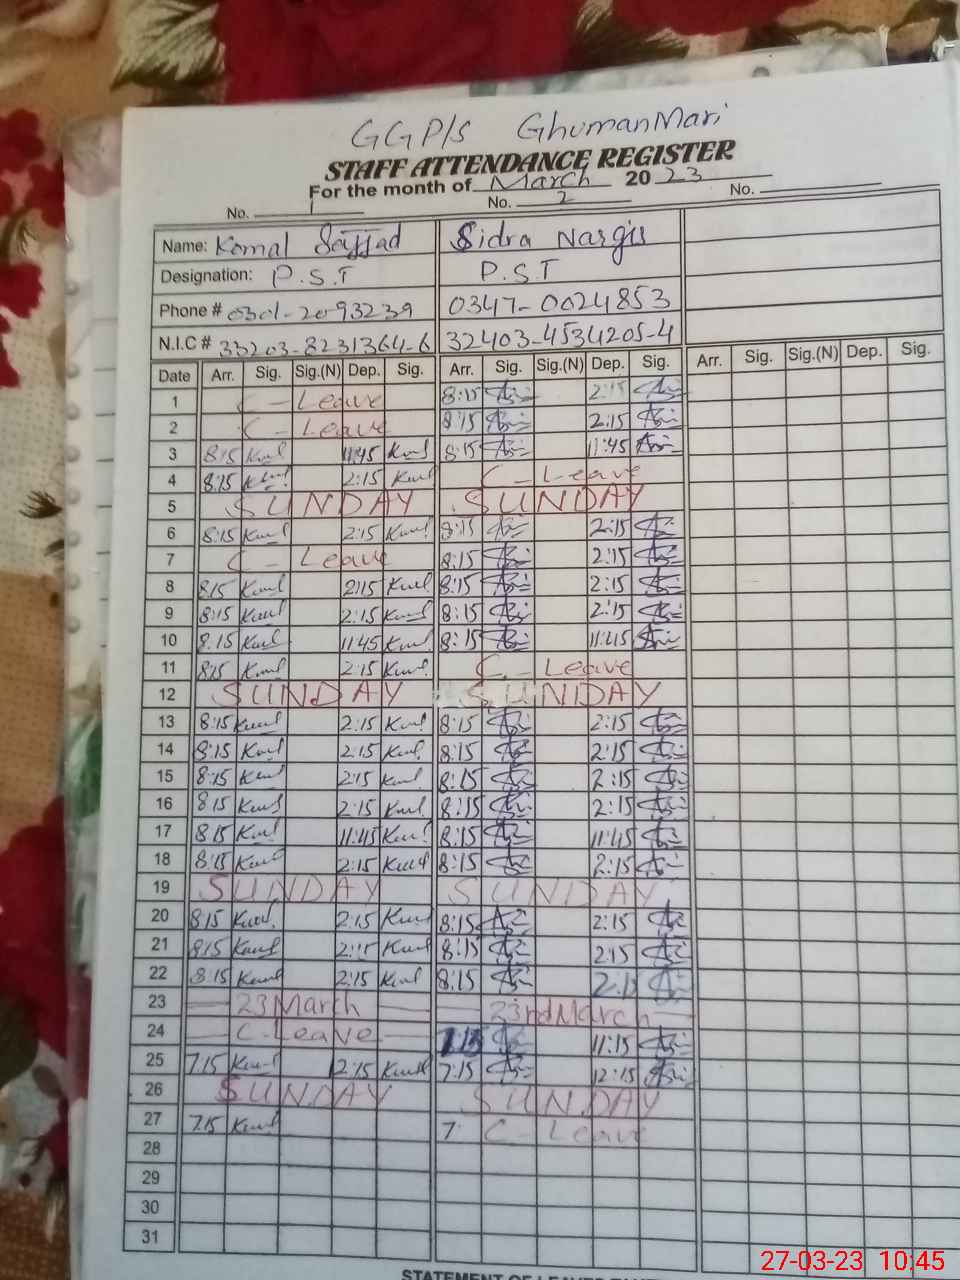 GGP/S GhumanMari
STAFF ATTENDANCE REGISTER
For the month of March 20 23
No. 1 No. 2 No.
Name: Komal Sajjad Sidra Nargis
Designation: P.S.T P.S.T
Phone # 0301-2093239 0347-0024853
N.I.C # 33203-8231364-6 32403-4534205-4
Date Arr. Sig. Sig.(N) Dep. Sig. Arr. Sig. Sig.(N) Dep. Sig. Arr. Sig. Sig.(N) Dep. Sig.
1 C - Leave 8:15 2:15
2 C - Leave 8:15 2:15
3 8:15 11:45 8:15 11:45
4 8:15 2:15 C - Leave
5 SUNDAY SUNDAY
6 8:15 2:15 8:15 2:15
7 C - Leave 8:15 2:15
8 8:15 2:15 8:15 2:15
9 8:15 2:15 8:15 2:15
10 8:15 11:45 8:15 11:45
11 8:15 2:15 C - Leave
12 SUNDAY SUNDAY
13 8:15 2:15 8:15 2:15
14 8:15 2:15 8:15 2:15
15 8:15 2:15 8:15 2:15
16 8:15 2:15 8:15 2:15
17 8:15 11:45 8:15 11:45
18 8:15 2:15 8:15 2:15
19 SUNDAY SUNDAY
20 8:15 2:15 8:15 2:15
21 8:15 2:15 8:15 2:15
22 8:15 2:15 8:15 2:15
23 23 March 23rd March
24 C - Leave 11:15
25 7:15 12:15 7:15 12:15
26 SUNDAY SUNDAY
27 7:15 7 C - Leave
28
29
30
31
27-03-23 10:45